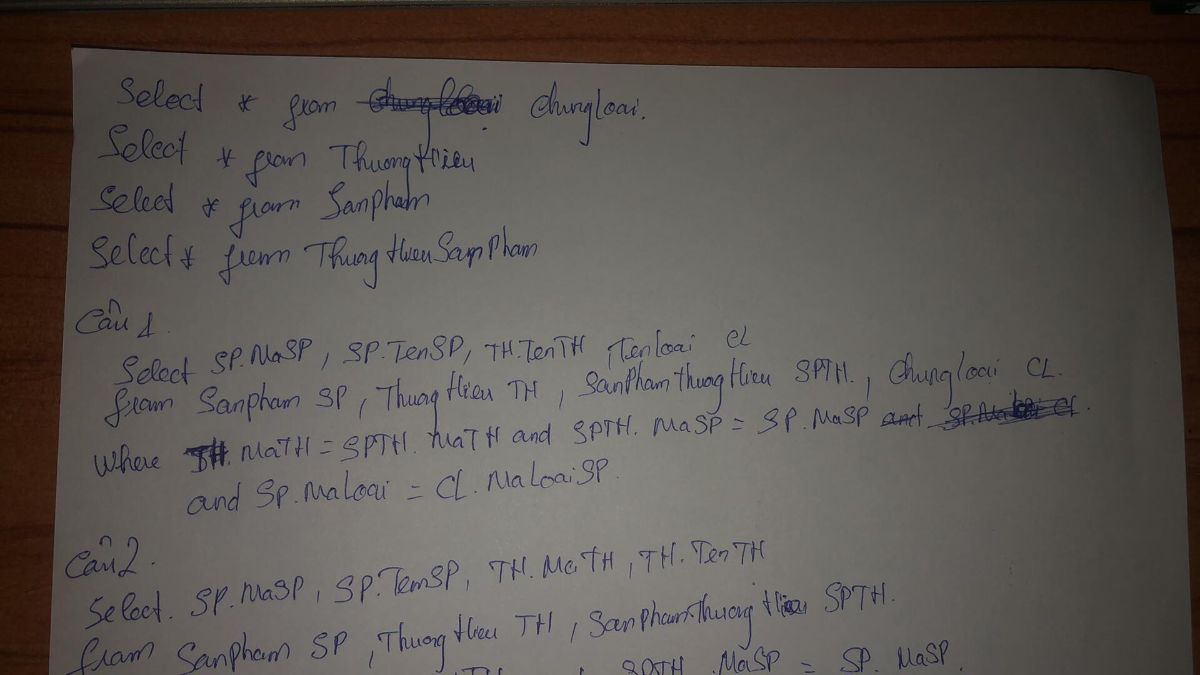 Select * from chungloai.
Select * from ThuongHieu
Select * from Sanpham
Select * from ThuongHieuSanPham
Câu 1.
Select SP.MaSP, SP.TenSP, TH.TenTH, Tenloai CL
from Sanpham SP, ThuongHieu TH, SanPhamthuongHieu SPTH., chungloai CL.
where TH.MaTH = SPTH.MaTH and SPTH.MaSP = SP.MaSP
and SP.Maloai = CL.MaloaiSP.
Câu 2.
Select. SP.MaSP, SP.TenSP, TH.MaTH, TH.TenTH
from SanPham SP, ThuongHieu TH, SanPhamThuongHieu SPTH.
SPTH.MaSP = SP.MaSP.